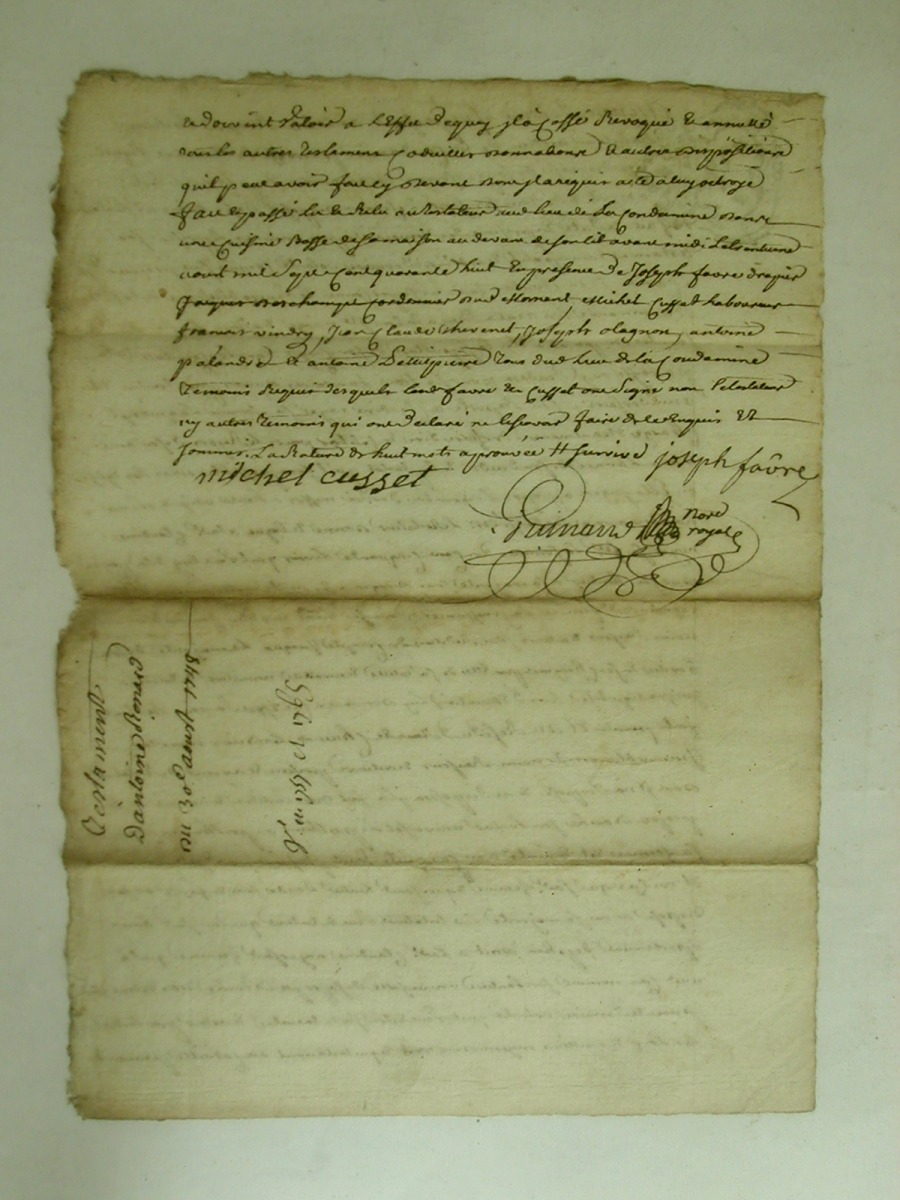 et doivent valoir a L'Effet dequoy jl a Cassé Revoqué Et annullé
tous les autres testament Codicilles donnations Et autres dispositions
quil peut avoir fait cy devant dont jl a requis acte a luy octroyé
fait & passé Lu & Relu au testateur aud lieu de La Condamine dans
une Cuisine Basse de sa maison au devant de son lit avant midi Le trentieme
aoust mil Sept Cent quarante huit En presence de Joseph favre drapier
Jacques deschamps Cordonnier dud Mornant Michel Cusset Laboureur
francois vindry, Jean Claude thevenet, Joseph olagnon, antoine
palandre Et antoine Petitpierre tous dud Lieu de la Condamine
temoins Requis desquels Lesd favre & Cusset ont Signé non Le testateur
ny autres temoins qui ont Declaré ne le scavoir faire de ce Enquis Et
Sommés. La Rature de huit mots aprouvée # survivé joseph favre
michel cusset
Guinand nore
royal
Testament
D'antoine
du 30e aoust 1748